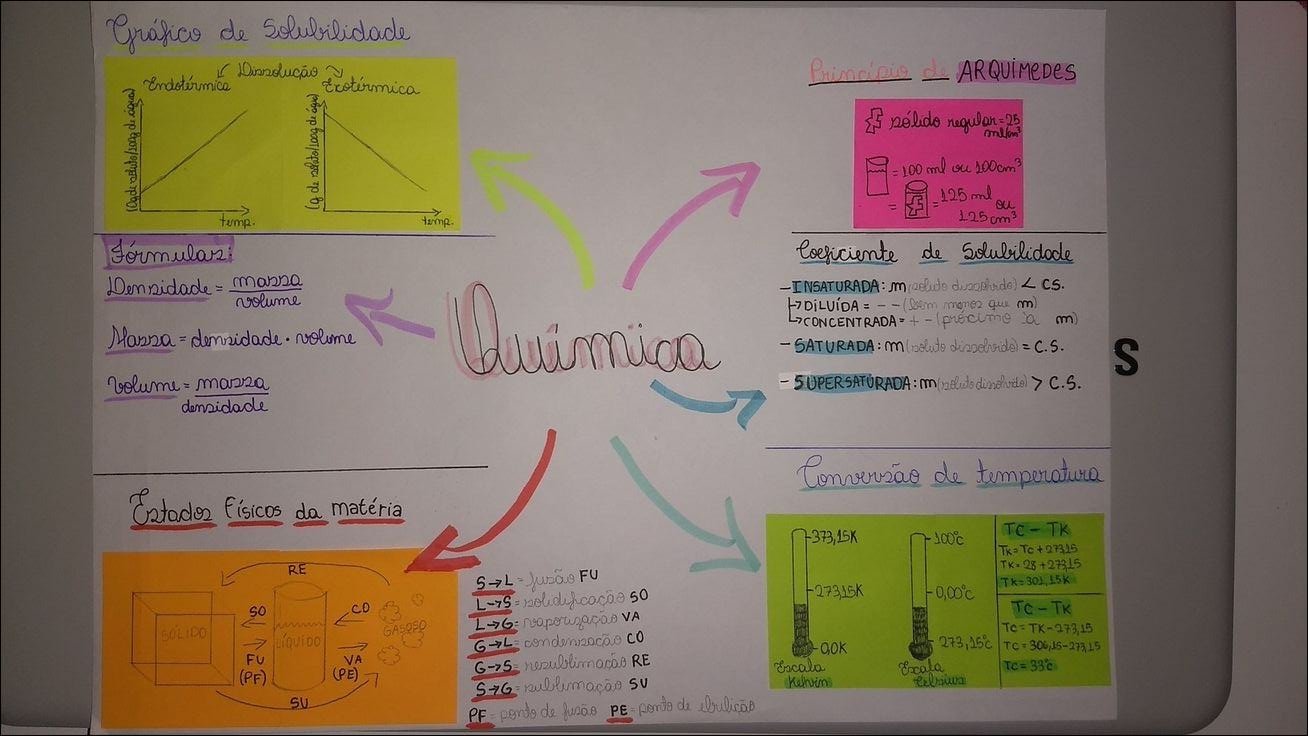 Gráfico de Solubilidade
Dissolução
Endotérmica
Exotérmica
(g de soluto/100g de água)
temp.
(g de soluto/100g de água)
temp.
Princípio de ARQUIMEDES
sólido regular = 25
ml/cm³
= 100 ml ou 100cm³
= = 125 ml
ou
125 cm³
Fórmulas:
Densidade = massa
volume
Massa = densidade . volume
Volume = massa
densidade
Química
Coeficiente de Solubilidade
- INSATURADA: m (soluto dissolvido) < CS.
DILUÍDA = - - (bem menos que m)
CONCENTRADA = + - (próximo à m)
- SATURADA: m (soluto dissolvido) = C.S.
- SUPERSATURADA: m (soluto dissolvido) > C.S.
S
Estados Físicos da matéria
RE
SÓLIDO
SO
LÍQUIDO
CO
GASOSO
FU
(PF)
VA
(PE)
SU
S→L = fusão FU
L→S = solidificação SO
L→G = vaporização VA
G→L = condensação CO
G→S = ressublimação RE
S→G = sublimação SU
PF = ponto de fusão PE = ponto de ebulição
Conversão de temperatura
373,15K
273,15K
0,0K
Escala
Kelvin
100°C
0,00°C
273,15°C
Escala
Celsius
TC - TK
TK = TC + 273,15
TK = 28 + 273,15
TK = 301,15K
TC - TK
TC = TK - 273,15
TC = 306,15 - 273,15
TC = 33°C